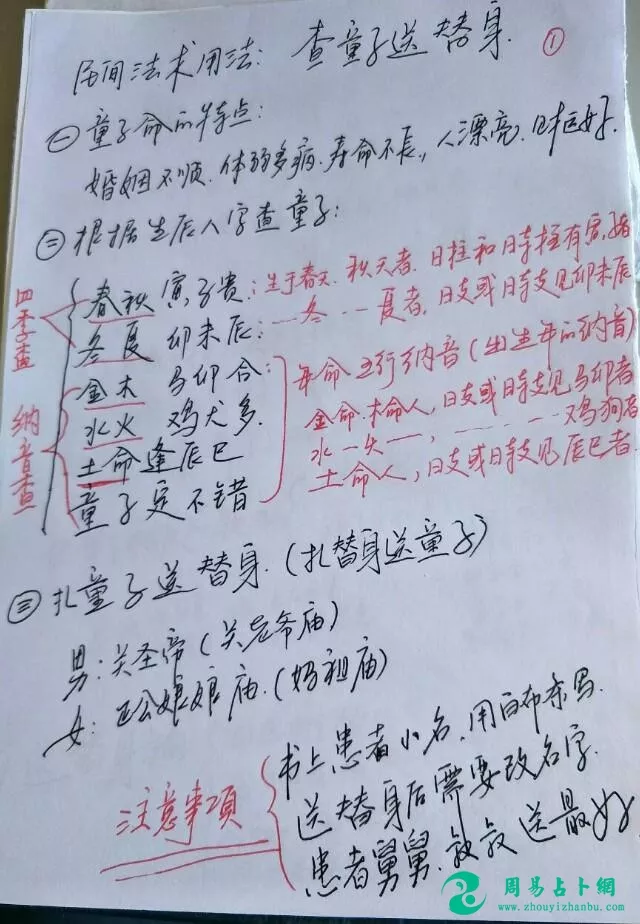 民间法术用法: 查童子送替身. ①
㊀ 童子命的特点:
婚姻不顺. 体弱多病. 寿命不长,, 人漂亮.
㊁ 根据生辰八字查童子:
四季查
春秋 寅子贵: 生于春天. 秋天者. 日柱和时柱有寅.子者
冬夏 卯未辰: 一冬一夏者, 日支或日時支见卯未辰
纳音查
金木 马卯合:
水火 鸡犬多.
土命逢辰巳
童子定不错
年命五行纳音(出生年的纳音)
金命.木命人, 日支或日時支见马卯者
水一火一, 鸡狗者
土命人, 日支或日時支见辰巳者.
㊂ 扎童子送替身. (扎替身送童子)
男: 关圣帝 (关老爷庙)
女: 娘娘庙. (妈祖庙)
注意事項
书上患者小名, 用白布条写.
送替身后需要改名字.
患者舅舅. 叔叔送最好
周易占卜網
www.zhouyizhanbu.com